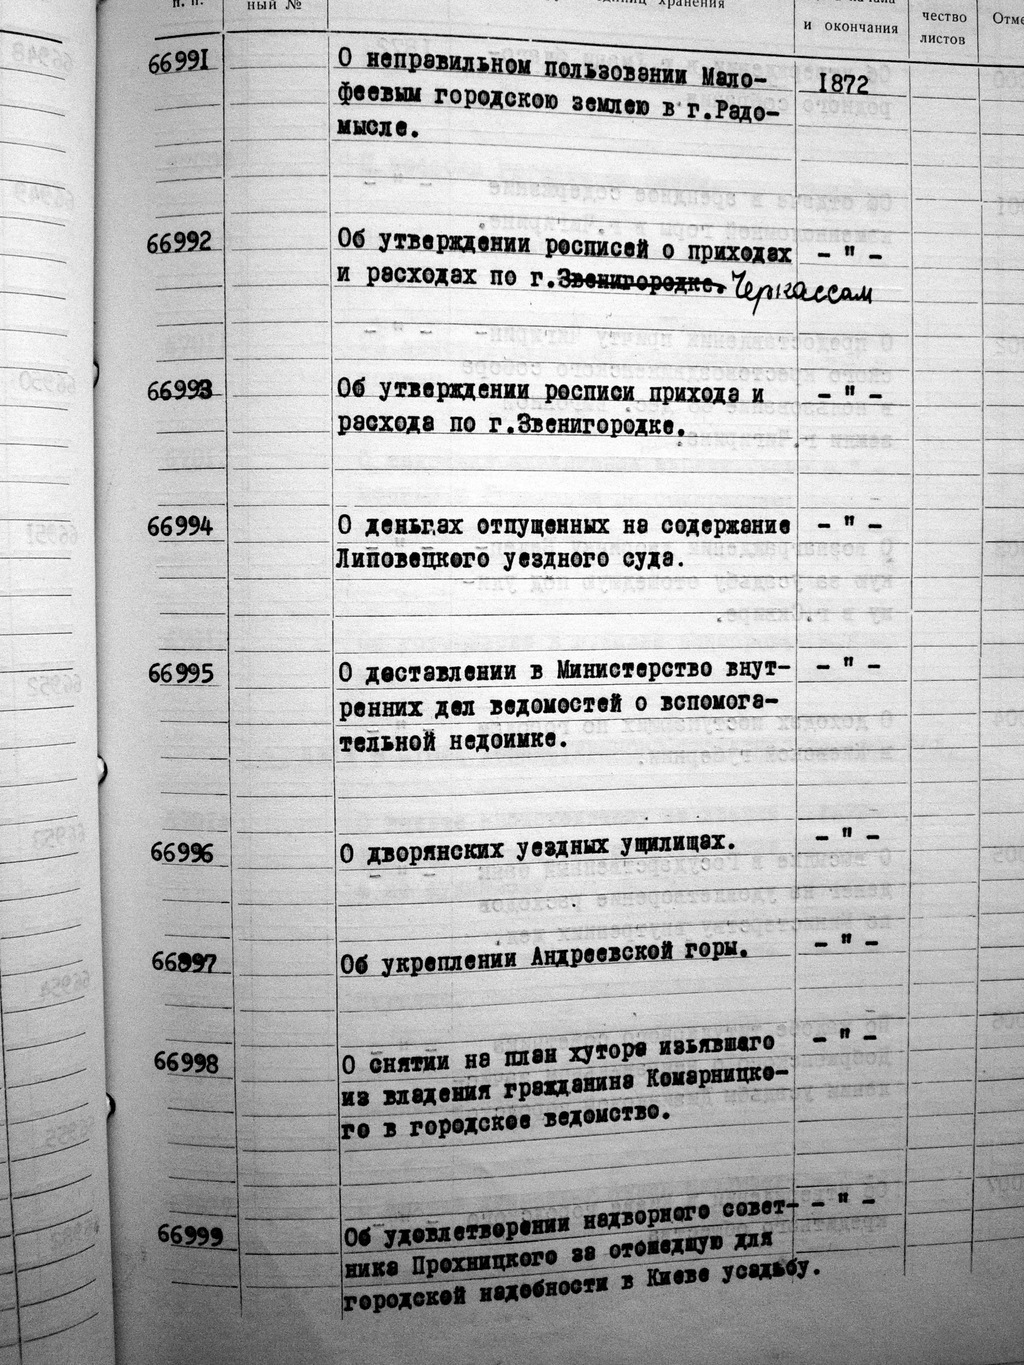 п. п.
ный №
хранения
и окончания
чество
листов
Отме
66991
О неправильном пользовании Мало-
феевым городскою землею в г.Радо-
мысле.
1872
66992
Об утверждении росписей о приходах
и расходах по г.Звенигородке. Черкассам
- " -
66993
Об утверждении росписи прихода и
расхода по г.Звенигородке.
- " -
66994
О деньгах отпущенных на содержание
Липовецкого уездного суда.
- " -
66995
О доставлении в Министерство внут-
ренних дел ведомостей о вспомога-
тельной недоимке.
- " -
66996
О дворянских уездных ущилищах.
- " -
66997
Об укреплении Андреевской горы.
- " -
66998
О снятии на план хутора изьявшего
из владения гражданина Комарницко-
го в городское ведомство.
- " -
66999
Об удовлетворении надворного совет-
ника Прохницкого за отошедщую для
городской надобности в Киеве усадьбу.
- " -